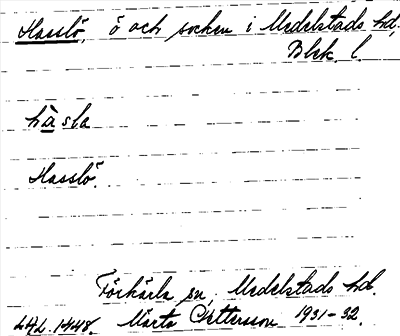 Hasslö, ö och socken i Medelstads hd,
Blek. l.
hàsla
Hasslö.
Förkärla sn, Medelstads hd.
Märta 1931-32.